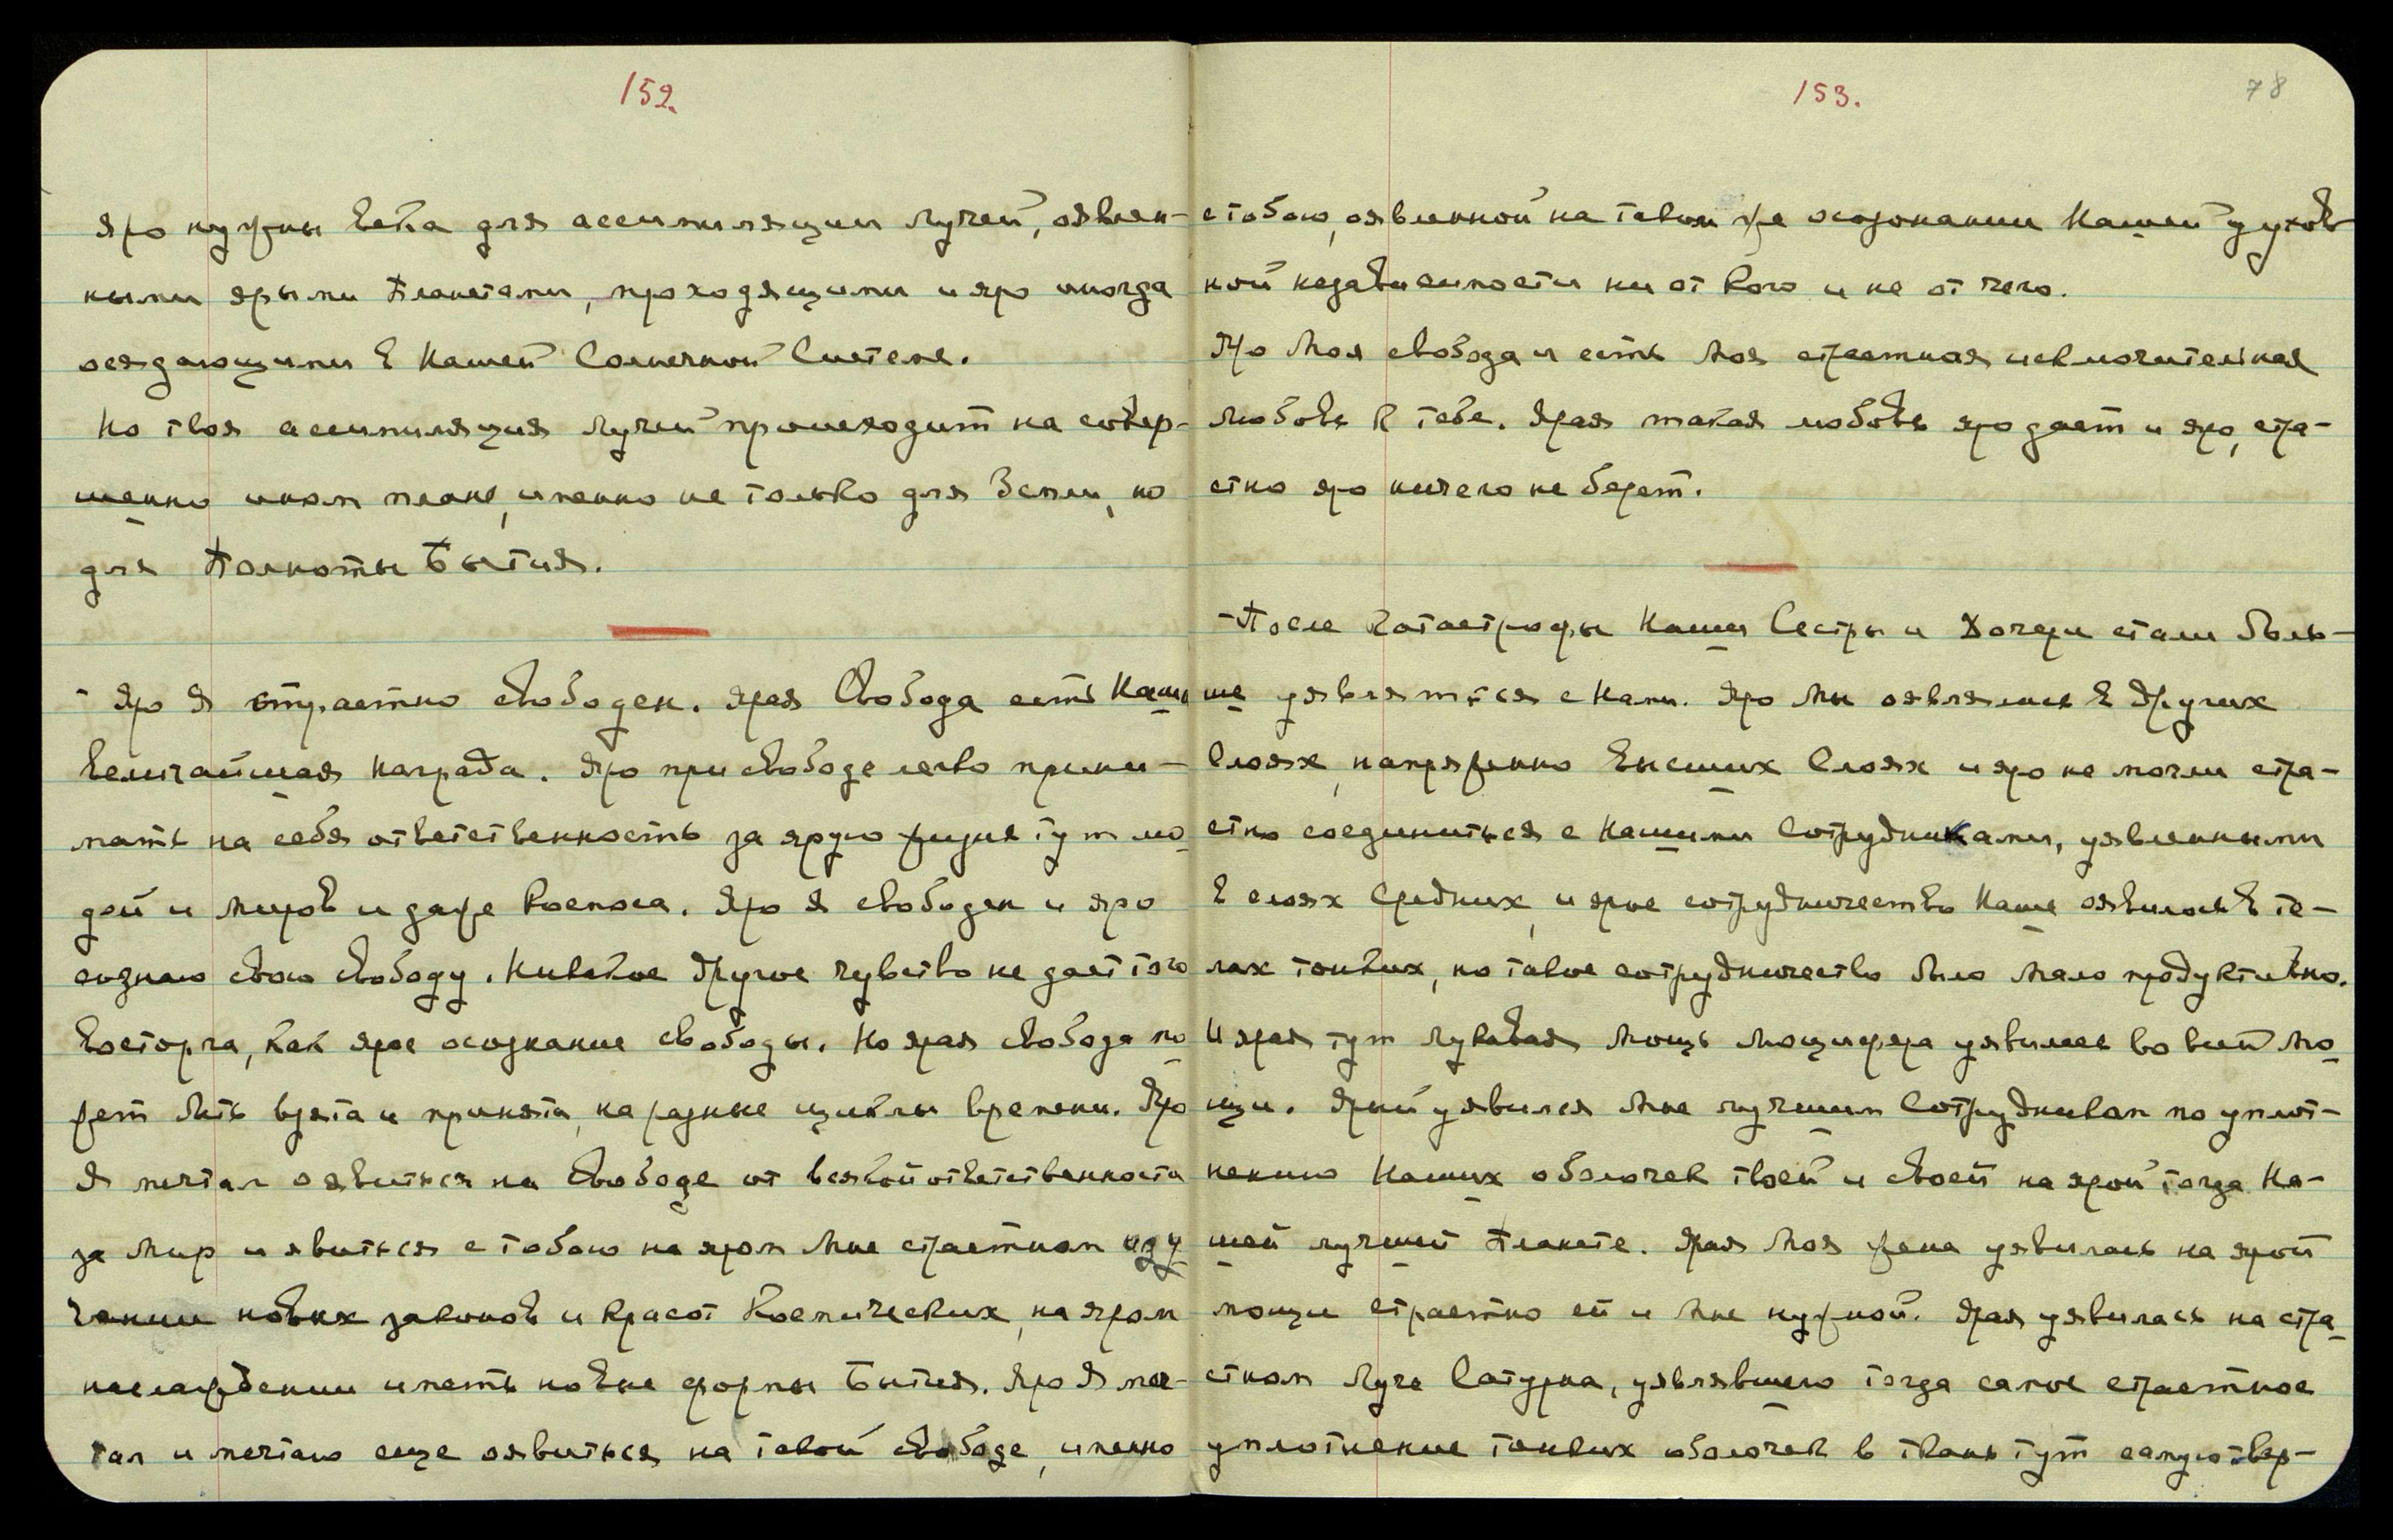 152.
Яро нужны века для ассимиляции лучей, оявлен-
ными ярыми Планетами, проходящими и яро иногда
оседающими в Нашей Солнечной Системе.
Но твоя ассимиляция лучей происходит на совер-
шенно ином плане, именно не только для Земли, но
для Полноты Бытия.
- Яро Я страстно свободен. Ярая Свобода есть Наша
величайшая награда. Яро при свободе легко прини-
мать на себя ответственность за ярую жизнь тут лю
дей и миров и даже Космоса. Яро Я свободен и яро
сознаю свою свободу. Никакое другое чувство не дает того
восторга, как ярое осознание свободы. Но ярая свобода мо
жет быть взята и принята, на разные циклы времени. Яро
Я мечтал оявиться на свободе от всякой ответственности
за Мир и явиться с тобою на яром Мне страстном изу
чении новых законов и красот Космических, на яром
наслаждении иметь новые формы Бытия. Яро Я меч-
тал и мечтаю еще оявиться на такой свободе, именно
153.
78
с тобою, оявленной на таком же осознании Нашей духов
ной независимости ни от кого и не от чего.
Яро Моя свобода и есть Моя страстная исключительная
любовь к тебе. Ярая такая любовь яро дает и яро, стра-
стно яро ничего не берет.
- После катастрофы Наши Сестры и Дочери стали боль-
ше уявляться с Нами. Яро Мы оявлялись в Других
Слоях, напряженно Высших Слоях и яро не могли стра-
стно соединиться с Нашими Сотрудниками, уявленными
в слоях Средних, и ярое сотрудничество Наше оявилось в те-
лах тонких, но такое сотрудничество было мало продуктивно.
И ярая тут лукавая мощь Люцифера уявилась во всей мо
щи. Ярый уявился Мне лучшим Сотрудником по уплот-
нению Наших оболочек твоей и своей на ярой тогда На-
шей лучшей Планете. Ярая Моя жена уявилась на ярой
мощи страстно ей и Мне нужной. Ярая уявилась на стра
стном Луче Сатурна, уявлявшего тогда самое страстное
уплотнение тонких оболочек в ткань тут самую твер-